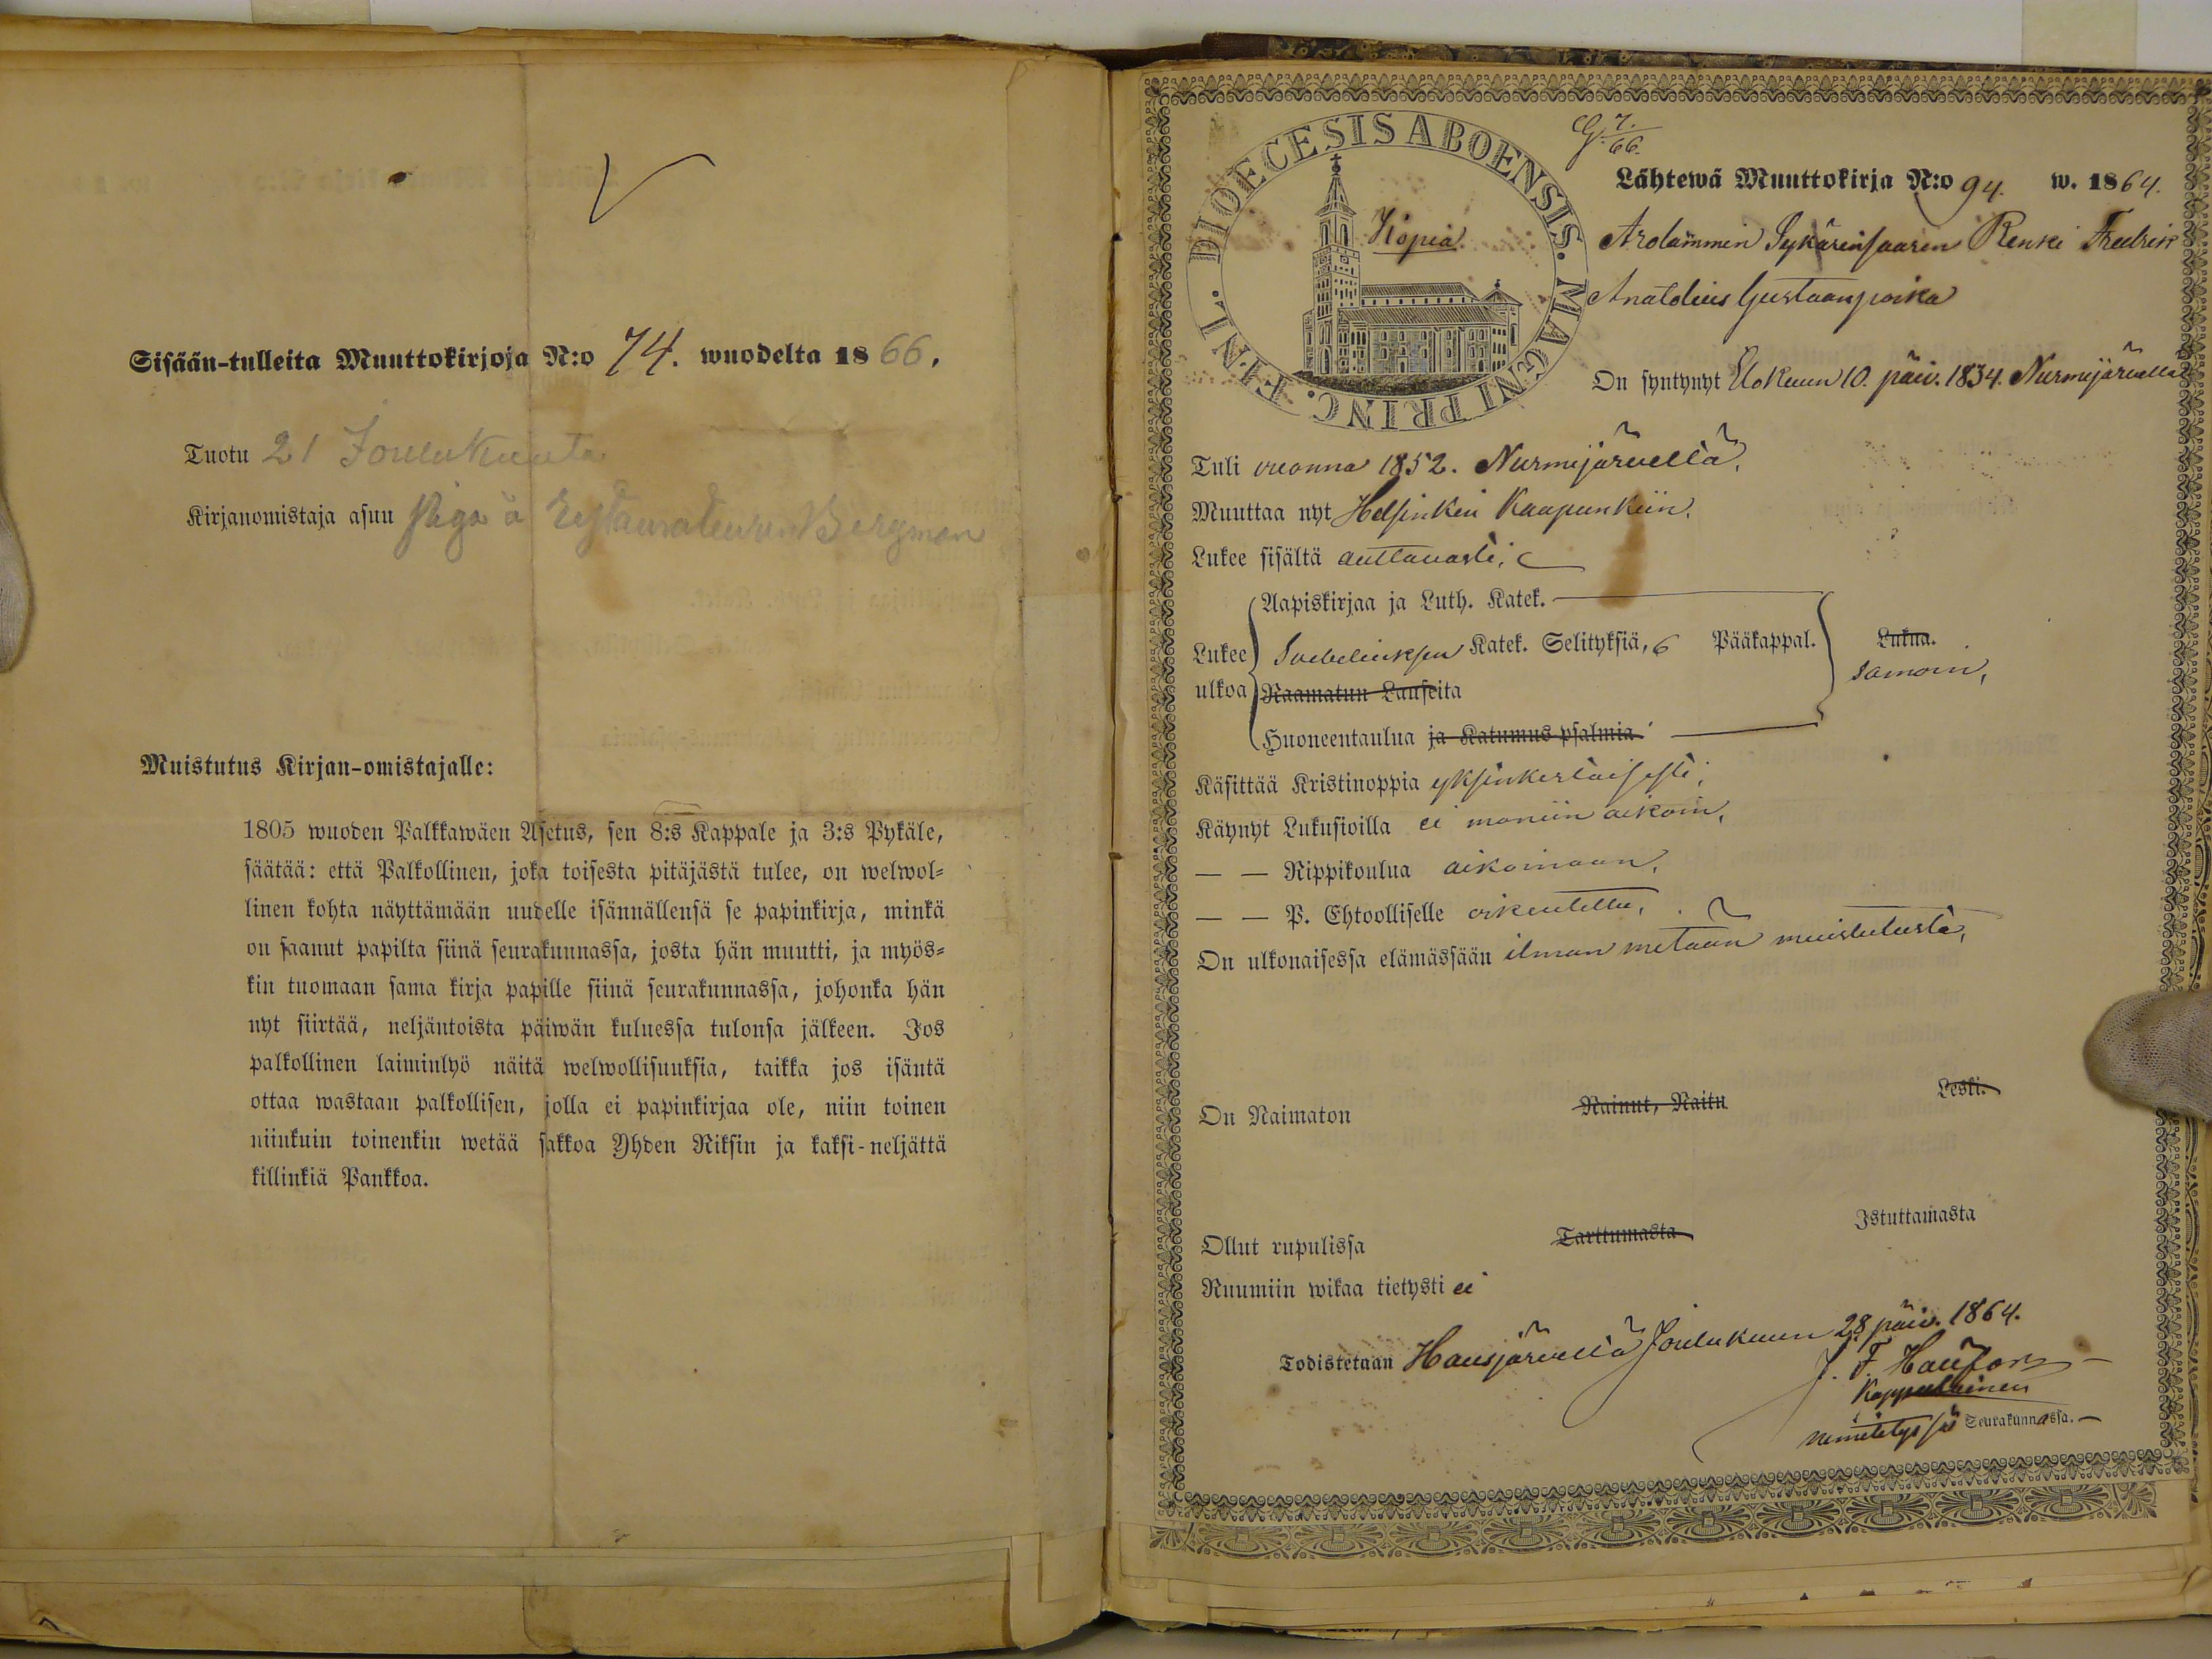 Sisään-tulleita Muuttokirjoja N:o 74. wuodelta 1866.
Tuotu 21 Joulukuuta
Kirjanomistaja asuu Piga å Bergman
Muistutus Kirjan-omistajalle:
1805 wuoden Palkkawäen Asetus, sen 8:s Kappale ja 3:s Pykäle,
säätää: että Palkollinen, joka toisesta pitäjästä tulee, on welwol-
linen kohta näyttämään uudelle isännällensä se papinkirja, minkä
on saanut papilta siinä seurakunnassa, josta hän muutti, ja myös-
kin tuomaan sama kirja papille siinä seurakunnassa, johonka hän
nyt siirtää, neljäntoista päiwän kuluessa tulonsa jälkeen. Jos
palkollinen laiminlyö näitä welwollisuuksia, taikka jos isäntä
ottaa wastaan palkollisen, jolla ei papinkirjaa ole, niin toinen
niinkuin toinenkin wetää sakkoa Yhden Riksin ja kaksi-neljättä
killinkiä Pankkoa.
DIOECESIS ABOENSIS. MAGNI PRINC. FINL.
Kopia.
7.
66.
Lähtewä Muuttokirja N:o 94. w. 1864.
Arolammin Sykärinsaaren Renki Fredrik
Anatolius Gustaanpoika
On syntynyt Elokuun 10. päiv. 1834. Nurmijärvellä
Tuli vuonna 1852. Nurmijärveltä.
Muuttaa nyt Helsinkin Kaupunkiin.
Lukee sisältä auttavasti.
Lukee ulkoa
Aapiskirjaa ja Luth. Katek.
Svebeliuksen Katek. Selityksiä, 6 Pääkappal. Lukua.
samoin,
Raamatun Lauseita
Huoneentaulua ja Katumus-psalmia.
Käsittää Kristinoppia yksinkertaisesti,
Käynyt Lukusioilla ei moniin aikoin,
— — Rippikoulua aikoinaan,
— — P. Ehtoolliselle oikeutettu,
On ulkonaisessa elämässään ilman mitään muistutusta,
On Naimaton Nainut, Naitu Leski.
Ollut rupulissa Tarttumasta Istuttamasta
Ruumiin wikaa tietysti ei
Todistetaan Hausjärvellä Joulukuun 28 päiv. 1864.
J. F.
Kappalainen
nimitetyssä Seurakunnassa.